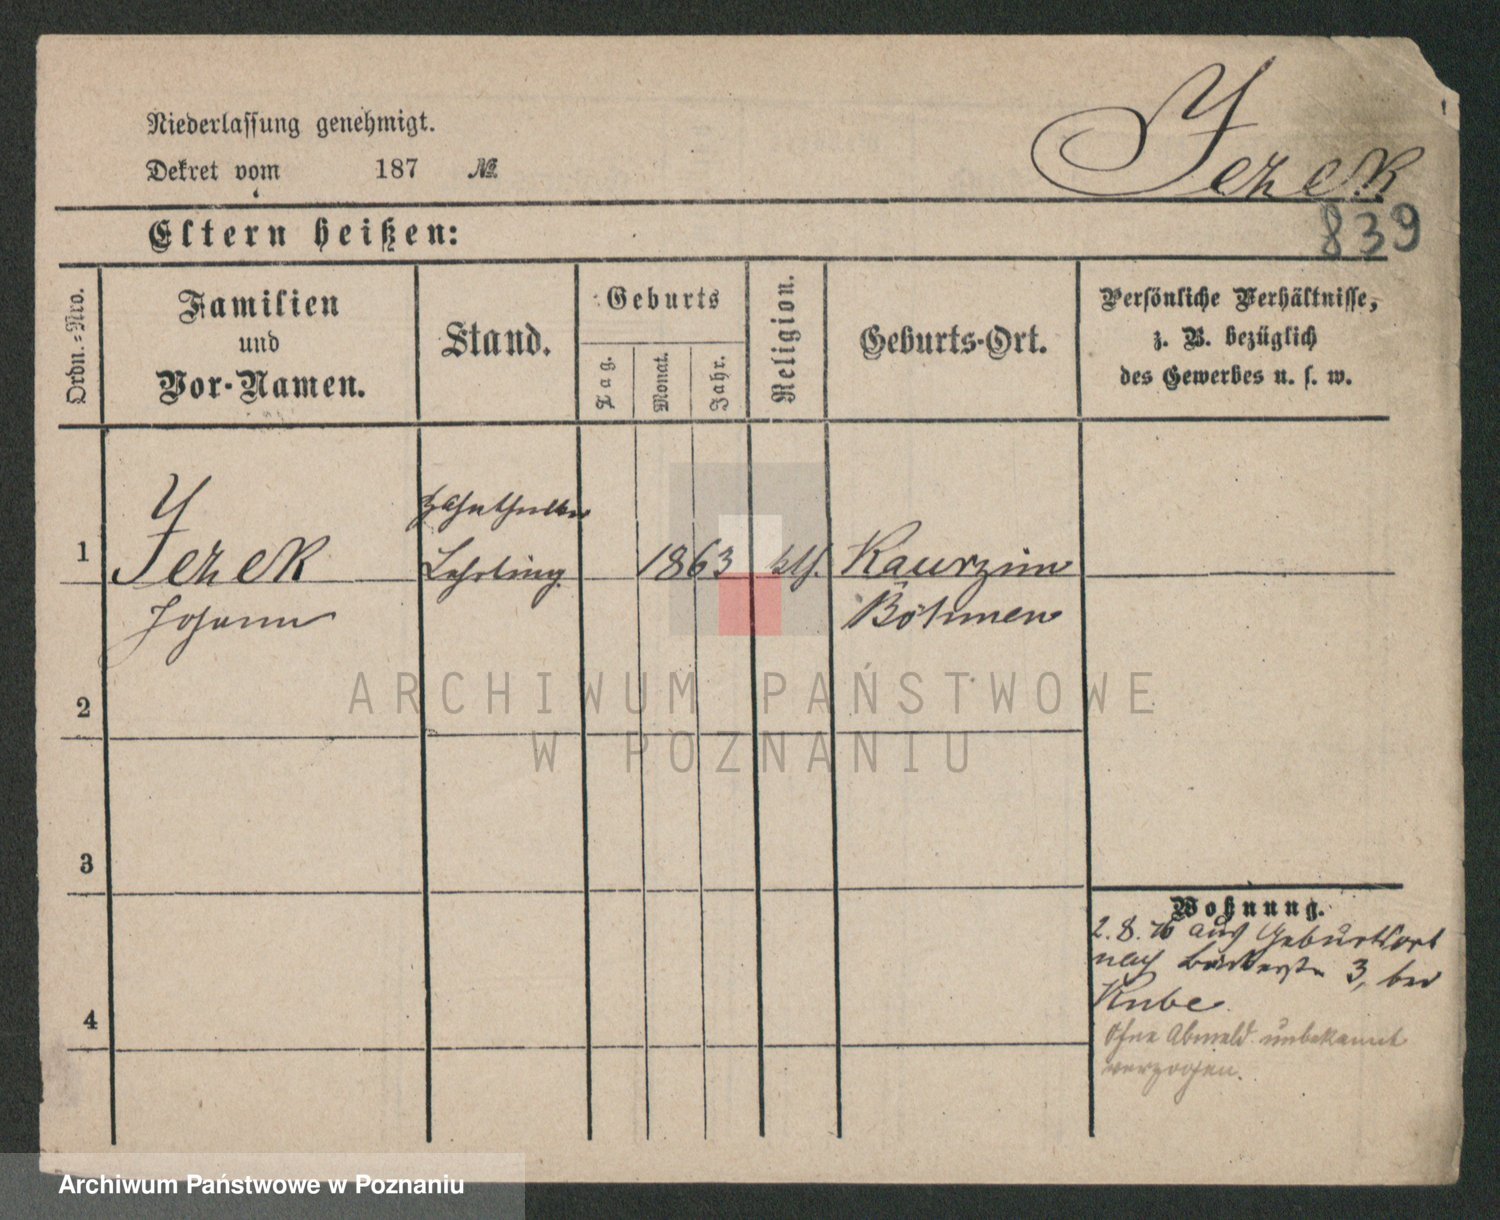 Jezek
Niederlassung genehmigt.
Dekret vom 187 №
839
Eltern heißen:
Ordn.-Nro.
Familien
und
Vor-Namen.
Stand.
Geburts
Tag.
Monat.
Jahr.
Religion.
Geburts-Ort.
Persönliche Verhältnisse,
z. B. bezüglich
des Gewerbes u. s. w.
1
Jezek
Johann
Lehrling
1863
kth.
Kaurzim
Böhmen
2
3
4
Wohnung.
2. 8. 76 aus Geburtsort
nach 3, bei
Kube.
Ohne Abmeld. unbekannt
verzogen.
ARCHIWUM PAŃSTWOWE
W POZNANIU
Archiwum Państwowe w Poznaniu